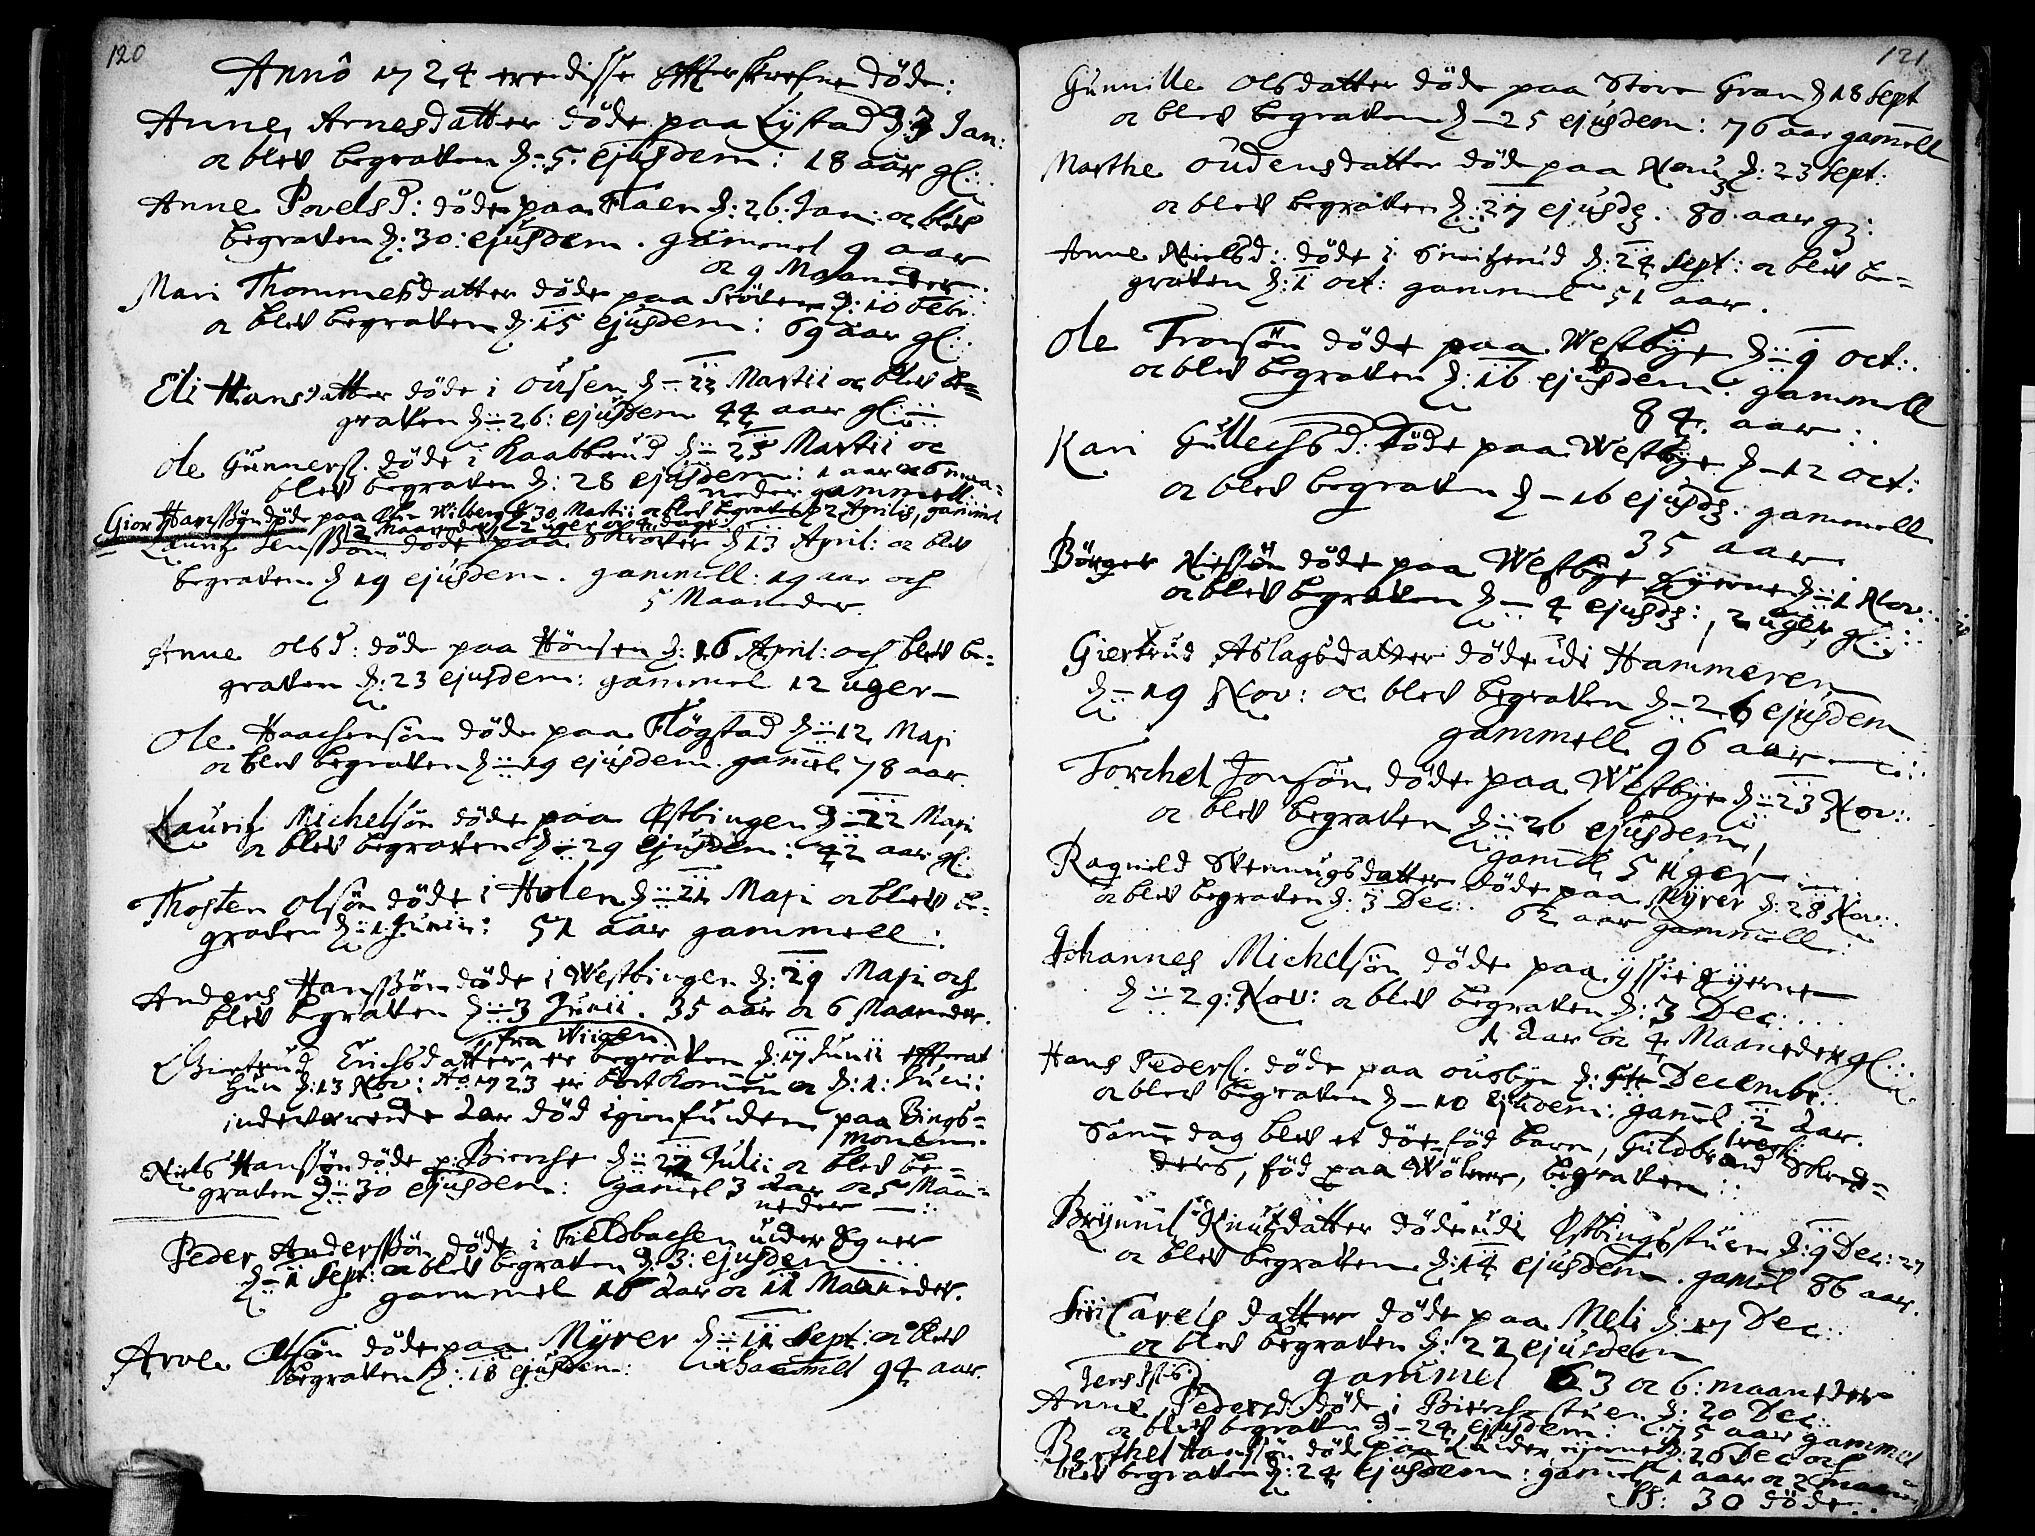 120
Annô 1724 ere disse Effterskrefne døde:
Anne Arnesdatter døde paa Lystad d: 3 Jan:
oc blev begraven d: 5. ejusdem: 18 aar gl:
Anne Povelsd: døde paa Floen d: 26. Jan: oc blev
begraven d: 30: ejusdem. gammel 9 aar
oc 9 Maaneder.
Mari Thommesdatter døde paa d: 10 Febr:
oc blev begraven d: 15 ejusdem: 69 aar gl:
Eli Hansdatter døde i Ousen d: 22 Martii oc blev be-
graven d: 26: ejusdem 44 aar gl:
Ole Gunners. døde i Raabberud d: 25 Martii oc
blev begraven d: 28 ejusdem: 1 aar oc 6 maa-
neder gammell:
Giør Hanssøn døde paa Wilberg d 30 Martii oc blev begraved d 2 Aprilis, gammel
2 Maaneder, 2 uger oc 4 dage
Lauritz Jenssøn døde paa d 13 April: oc blev
begraven d 19 ejusdem. gammell: 19 aar och
5 Maaneder.
Anne Olsd: døde paa Hønsen d: 16 April: och blev be-
graven d: 23 ejusdem: gammel 12 uger
Ole Haachensøn døde paa Fløgstad d: 12 Maji
oc blev begraven d: 19 ejusdem. gamel 78 aar.
Lauritz Michelsøn døde paa Østbingen d: 22 Maji
oc blev begraven d: 29 ejusdem: 42 aar gl:
Thosten Olsøn døde i Holen d: 21 Maji oc blev be-
graven d: 1 Junii: 51 aar gammell:
Anders Hanssøn døde i Westbingen d: 29 Maji och
blev begraven d: 3 Junii. 35 aar oc 6 Maaneder.
fra Wiigen
Giertrud Erichsdatter, er begraven d: 17 Junii effterat
hun d: 13 Nov: Ao. 1723 er bortkommen oc d: 1: Junii
indeværende aar død igienfunden paa Bings-
monen.
Niels Hanssøn døde p: Bierche d: 27 Julii oc blev be-
graven d: 30 ejusdem: gamel 3 aar oc 5 Maa-
neder
Peder Anderssøn døde i Fieldbachen under Egner
d: 1 Sept: oc blev begraven d: 3: ejusdem
gammel 16 aar oc 11 Maaneder.
Arve Olsøn døde paa Myrer d: 11 Sept: oc blev
begraven d: 18 ejusdem: Gammel 94 aar.
121
Gunnille Olsdatter døde paa Store Gran d 18 Sept
oc blev begraven d 25 ejusdem: 76 aar gammell
Marthe Oudensdatter døde paa d: 23 Sept:
oc blev begraven d: 27 ejusd: 80 aar g:
Anne Nielsd: døde i d: 24 Sept: oc blev be-
graven d: 1 Oct: gammel 51 aar.
Ole Tronsøn døde paa Westbye d: 9 Oct:
oc blev begraven d: 16 ejusdem. gammell
84. aar:
Kari Gullechsd: døde paa Westbye d 12 Oct:
oc blev begraven d 16 ejusd: gammell
35 aar
Børger Nilssøn døde paa Westbye Eyerne d: 1 Nov:
oc blev begraven d 4 ejusd:, 2 uger gl:
Giertrud Aslagsdatter døde udi Hammeren
d: 19 Nov: oc blev begraven d: 26 ejusdem
gammell 96 aar
Torchel Jonsøn døde paa Westbye d: 23 Nov:
oc blev begraven d: 26 ejusdem,
gamel 5 uger
Ragnild Stennugsdatter døde paa Myrer d: 28 Nov:
oc blev begraven d: 3 Dec: 62 aar gammell:
Johannes Michelsøn døde paa
d: 29: Nov: oc blev begraven d: 3 Dec:
1 Aar oc 4 Maaneder gl:
Hans Peders. døde paa Ousbye d: 5te Decembr:
oc blev begraven d 10 ejusdem: gamel 2 Aar.
Samme dag blev et død fød barn, Guldbrand
ders, fød paa begraven:
Brynnil Knutzdatter døde udi Østbingsstuen d: 9 Dec:
oc blev begraven d: 14 ejusdem. gamel 86 aar.
Siri Carels datter døde paa Meli d: 17 Dec:
oc blev begraven d: 22 ejusdem
gammel 63 oc 6: maaneder
Anne Pedersd: døde i Bierche stuen d: 20 Dec:
oc blev begraven d 24 ejusdem: 75 aar gammel
Berthel Hanssøn døde paa d: 20 Dec och
blev begraven d: 24 ejusdem: gamel 1 aar oc 2 maan
30 døde.